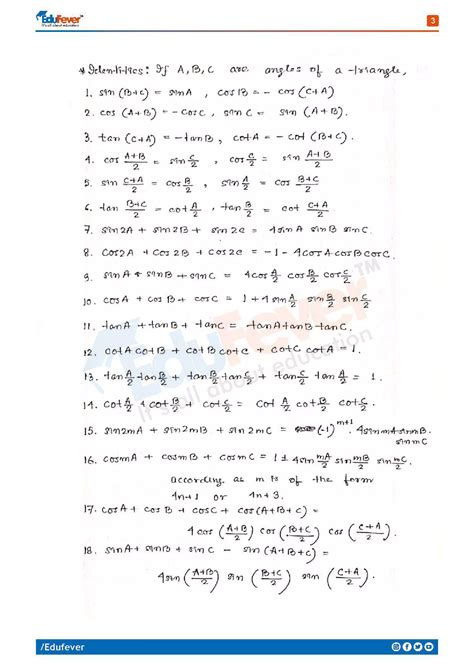 EduFever
It's all about education
3
* Identities: If A, B, C are angles of a triangle,
1. sin (B+C) = sinA , cosB = - cos (C+A)
2. cos (A+B) = - cosC , sin C = sin (A+B).
3. tan (C+A) = - tanB, cotA = - cot (B+C).
4. cos (A+B)/2 = sin C/2 , cos C/2 = sin (A+B)/2
5. sin (C+A)/2 = cos B/2 , sin A/2 = cos (B+C)/2
6. tan (B+C)/2 = cot A/2 , tan B/2 = cot (C+A)/2
7. sin2A + sin2B + sin2C = 4sinA sinB sinC.
8. cos2A + cos2B + cos2C = -1-4cosA cosB cosC.
9. sinA + sinB + sinC = 4cos A/2 cos B/2 cos C/2
10. cosA + cosB + cosC = 1+4sin A/2 sin B/2 sin C/2
11. tanA + tanB + tanC = tanA tanB tanC.
12. cotA cotB + cotB cotC + cotC cotA = 1.
13. tan A/2 tan B/2 + tan B/2 tan C/2 + tan C/2 tan A/2 = 1.
14. cot A/2 + cot B/2 + cot C/2 = cot A/2 cot B/2 cot C/2.
15. sin2mA + sin2mB + sin2mC = (-1)^m+1. 4sinmA sinmB.
sinmC
16. cosmA + cosmB + cosmC = 1 ± 4sin mA/2 sin mB/2 sin mC/2
according as m is of the form
4n+1 or 4n+3.
17. cosA + cosB + cosC + cos(A+B+C) =
4cos (A+B/2) cos (B+C/2) cos (C+A/2)
18. sinA + sinB + sinC - sin (A+B+C) =
4sin (A+B/2) sin (B+C/2) sin (C+A/2)
EduFever™
It's all about education
/Edufever